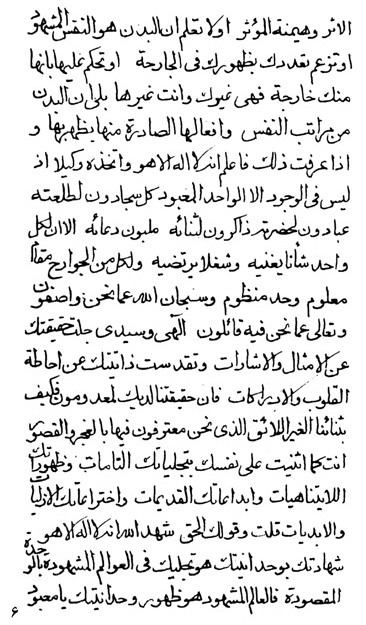 الاثر وهيمنة المؤثر اولا تعلم ان البدن هو النفس المشهود
او تزعم تعددك بظهورك فی الجارحة او تحكم عليها بانها
منك خارجة فهی غيرك وانت غيرها بلی ان البدن
من مراتب النفس وافعالها الصادرة منها يظهر بها و
اذا عرفت ذلك فاعلم انه لا اله الا هو واتخذه وكيلا اذ
ليس فی الوجود الا الواحد المعبود كل سجادون لطلعته
عبادون لحضرته ذاكرون لثنائه ملبون دعائه الا ان لكل
واحد شأنا يغنيه وشغلا يرتضيه ولكل من الجوارح مقاما
معلوم وحد منظوم وسبحان الله عما نحن واصفون
وتعالی عما نحن فيه قائلون الهی وسيدی جلت حقيقتك
عن الامثال والاشارات وتقدست ذاتيتك عن احاطة
القلوب والادراكات فان حقيقتنا لديك لمعدومون فكيف
بثنائنا الغير اللائق الذی نحن معترفون فيها بالعجز والقصور
انت كما اثنيت علی نفسك بتجلياتك التامات وظهوراتك
اللايتناهيات وابداعاتك القديمات واختراعاتك الازليات
والابديات قلت وقولك الحق شهد الله انه لا اله الا هو
شهادتك بوحدانيتك هو تجليك فی العوالم المشهودة بالوحدة
المقصودة فالعالم المشهود هو ظهور وحدانيتك يا معبود
۶